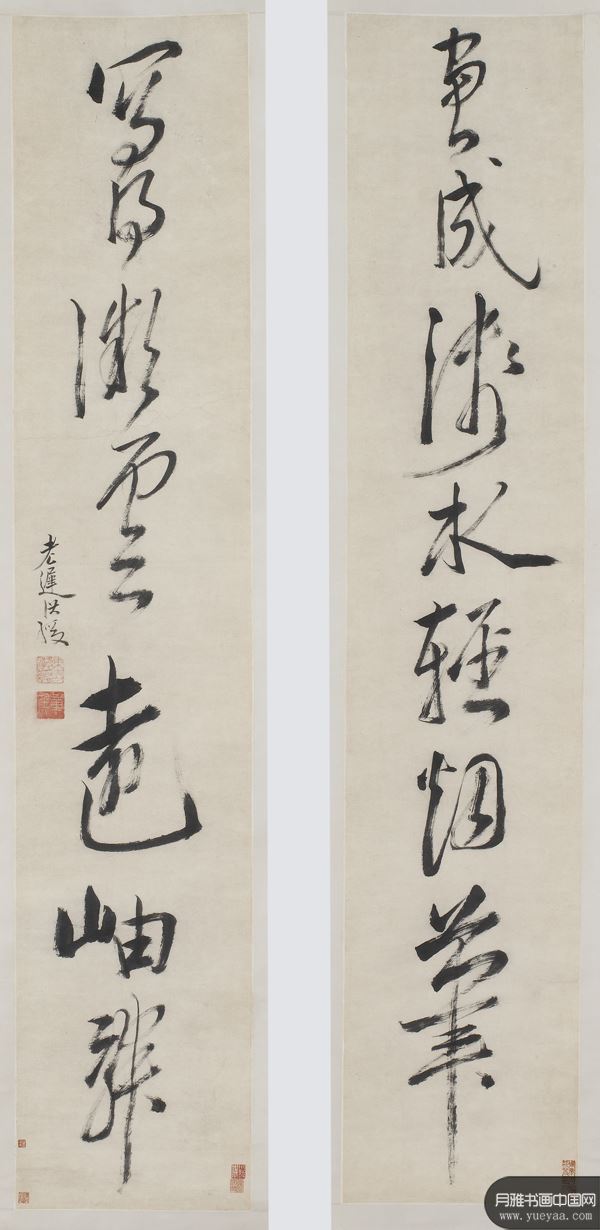 畫成淺水輕烟筆
寫得微雲遠岫辭
老遲洪綬
月雅书画中国网
www.yueyaa.com